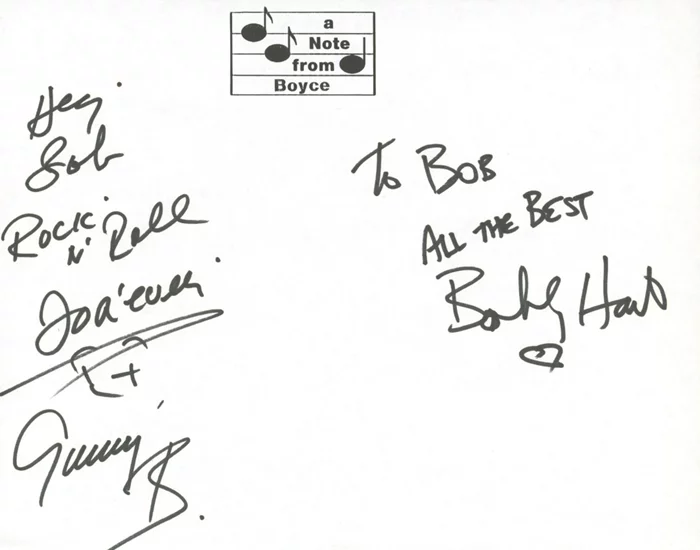 a
Note
from
Boyce
Hey
Bob
Rock
N' Roll
For'ever
To BOB
ALL THE BEST
Bobby Hart